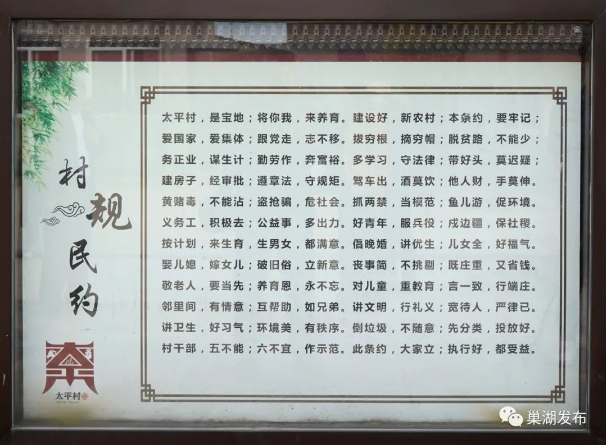 村规民约
太平村，是宝地；将你我，来养育。建设好，新农村；本条约，要牢记；
爱国家，爱集体；跟党走，志不移。拔穷根，摘穷帽；脱贫路，不能少；
务正业，谋生计；勤劳作，奔富裕。多学习，守法律；带好头，莫迟疑；
建房子，经审批；遵章法，守规矩。驾车出，酒莫饮；他人财，手莫伸。
黄赌毒，不能沾；盗抢骗，危社会。抓两禁，当模范；鱼儿游，促环境。
义务工，积极去；公益事，多出力。好青年，服兵役；戍边疆，保社稷。
按计划，来生育，生男女，都满意。倡晚婚，讲优生；儿女全，好福气。
娶儿媳，嫁女儿；破旧俗，立新意。丧事简，不挑剔；既庄重，又省钱。
敬老人，要当先；养育恩，永不忘。对儿童，重教育；言一致，行端庄。
邻里间，有情意；互帮助，如兄弟。讲文明，行礼义；宽待人，严律已。
讲卫生，好习气；环境美，有秩序。倒垃圾，不随意；先分类，投放好。
村干部，五不能；六不宜，作示范。此条约，大家立；执行好，都受益。
太平村
巢湖发布